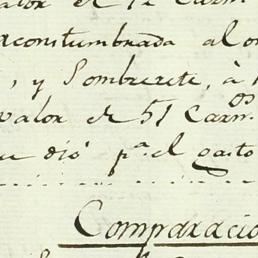 valor de 12 Carn.
acostumbrada al o
, y Sombrerete, à
valor de 51 Carn.os
dió p.a el gasto
Comparacio